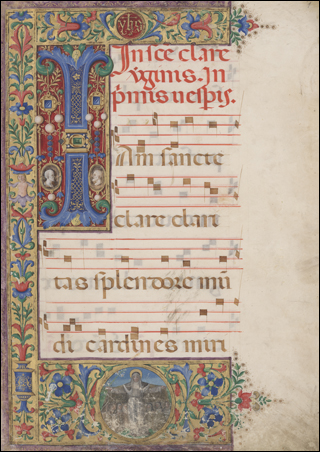 yhs
In sce clare
v̄ginis. In
p̄mis uesp̄is.
Iam sancte
clare clari
tas splendore mū
di cardines miri